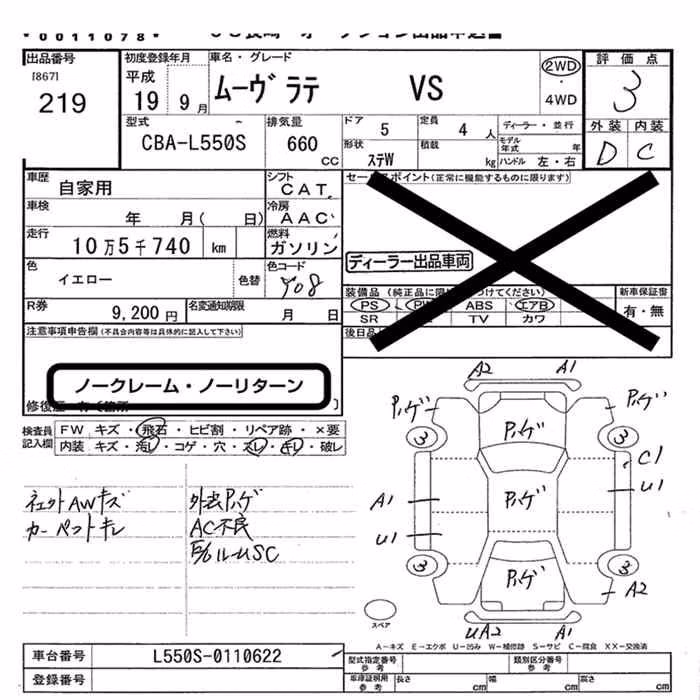 *0011078*
出品番号
[867]
219
初度登録年月
平成
19 9 月
車名・グレード
ムーヴ ラテ VS
2WD
・
4WD
評価点
3
外装 内装
D C
型式
CBA-L550S
排気量
660
CC
ドア 5
定員 4 人
ディーラー・並行
形状 ステW
積載 kg
モデル年式 年
ハンドル 左・右
車歴
自家用
シフト
CAT
車検
年 月( 日)
冷房
AAC
走行
10万5千740 km
燃料
ガソリン
色
イエロー
色替
色コード
Y08
R券
9,200 円
名変通知期限
月 日
セールスポイント(正常に機能するものに限ります)
ディーラー出品車両
PS ABS エアB
SR TV カワ
新車保証書
有・無
後日品
注意事項申告欄(不具合内容等は具体的に記入して下さい)
ノークレーム・ノーリターン
検査員記入欄
FW キズ・飛石・ヒビ割・リペア跡・×要
内装 キズ・汚レ・コゲ・穴・スレ・キレ・破レ
AWキズ
カーペットキレ
外装ハゲ
AC不良
A2 A1
ハゲ ハゲ
3 ハゲ 3
C1
A1 ハゲ U1
U1
3 ハゲ 3
A2
UA2 A1
スペア
A-キズ E-エクボ U-凹ミ W-補修跡 S-サビ C-腐食 XX-交換済
車台番号
L550S-0110622
登録番号
型式指定番号
参考
類別区分番号
参考
車庫証明用
参考
長さ cm
幅 cm
高さ cm